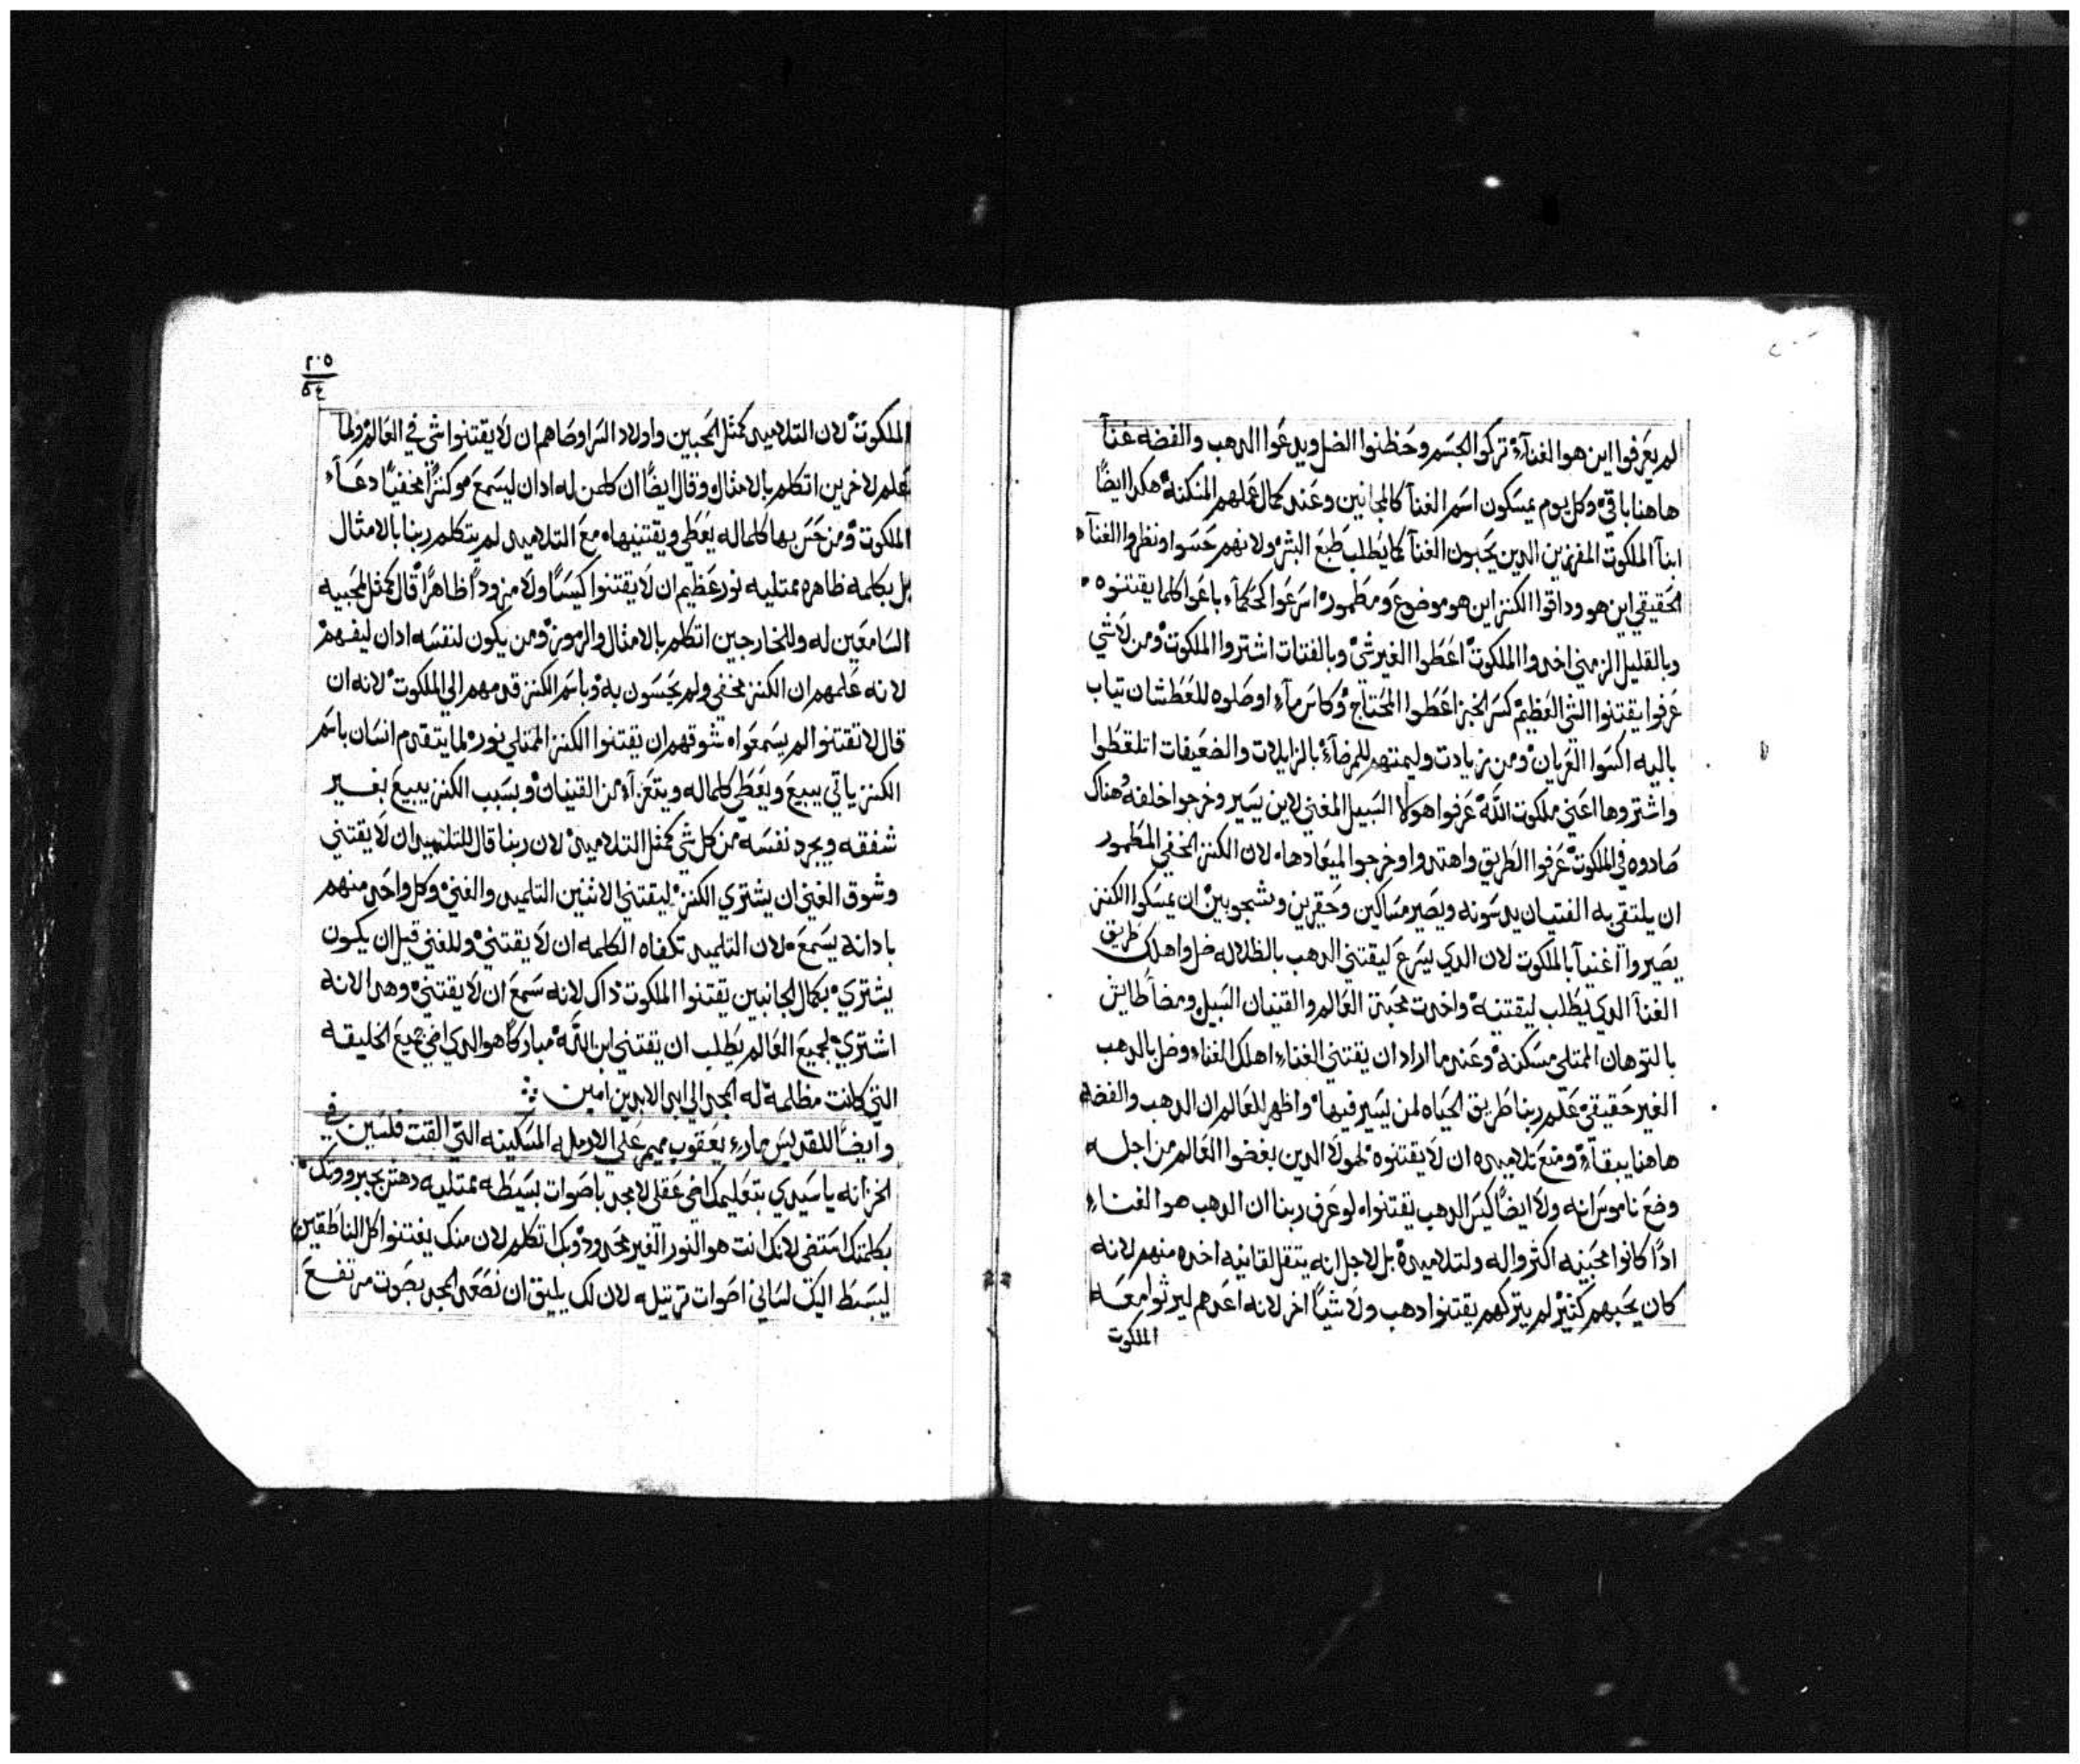 لم يعرفوا اين هو الغناء تركوا الجسم وحفظوا الضل ويدعوا الدهب والفضه غنآ
هاهنا باقي وكل يوم يمسكون اسم الغنآ كالمجانين وعند كمال عملهم المسكنة هكدا ايضًا
ابنآ الملكوت المفرزين الدين يحبون الغنآ كما يطلب طبع البشر ولانهم حسوا ونظروا الغنآ
الحقيقي اين هو وداقوا الكنز اين هو موضوع ومطمور اسرعوا الحكمآء باعوا كلما يقتنوه
وبالقليل الزمني اخدوا الملكوت اعطوا الغير شي وبالفتات اشتروا الملكوت ومن لا شي
عرفوا يقتنوا الشي العظيم كسر الخبز اعطوا المحتاج وكاس مآء اوصلوه للعطشان تياب
باليه اكسوا العريان ومن زيادت وليمتهم للمرضآء بالزايلات والضعيفات اتلقطوا
واشتروها اعني ملكوت الله عرفوا هولا السبيل المغني لاين يسير وخرجوا خلفه وهناك
صادوه في الملكوت عرفوا الطريق واهتدوا وخرجوا لميعادها لان الكنز الخفي المطمور
ان يلتقي به الفتيان يدسونه ويصير مساكين وحقيرين وشجوبين ان يمسكوا الكنز
يصيروا اغنيآ بالملكوت لان الدي يسرع ليقتني الدهب بالظلاله ضل واهلك طريق
الغنآ الدي يطلب ليقتنيه واخدت محبة العالم والقنيان السبيل ومضا طايش
بالتوهان الممتلي مسكنة وعند ما اراد ان يقتني الغناء اهلك الغناء وضل بالدهب
الغير حقيقي علم ربنا طريق الحياه لمن يسير فيها واظهر للعالم ان الدهب والفضه
هاهنا يبقآء ومنع تلاميده ان لا يقتنوه لهولا الدين بغضوا العالم من اجله
وضع ناموس انه ولا ايضًا كيس الدهب يقتنواه لو عرف ربنا ان الدهب هو الغناء
ادًا كانوا محبينه اكثروا له ولتلاميده بل لاجل انه يتقل لقانيه اخده منهم لانه
كان يحبهم كثير لم يتركهم يقتنوا دهب ولا شيًا اخر لانه اعدهم ليرثوا معه
الملكوت
٢٠٥
الملكوت لان التلاميد كمثل المحبين واولاد السر اوصاهم ان لا يقتنوا شي في العالم ولما
علم لاخرين اتكلم بالامثال وقال ايضًا ان كلمن له ادان ليسمع هو كنزًا مخفيًا دعآء
الملكوت ومن حس بها كلما له يعطي ويقتنيها مع التلاميد لم يتكلم ربنا بالامثال
بل بكلمه ظاهره ممتليه نور عظيم ان لا يقتنوا كيسًا ولا مزودًا ظاهرًا قال كمثل لمحبيه
السامعين له وللخارجين اتكلم بالامثال والرموز ومن يكون لنفسه ادان ليفهم
لانه علمهم ان الكنز مخفي ولم يحسون به وباسم الكنز قدمهم الي الملكوت لانه ان
قال لا تقتنوا لم يسمعوا شوقهم ان يقتنوا الكنز الممتلي نور لما يتقدم انسان باسم
الكنز ياتي يبيع ويعطي كلما له ويتعرآء من القنيان وبسبب الكنز يبيع بغير
شفقه ويجرد نفسه من كل شي كمثل التلاميد لان ربنا قال للتلاميد ان لا يقتني
وشوق الغني ان يشتري الكنز ليقتني الاثنين التلميد والغني وكل واحد منهم
بادانه يسمع لان التلميد تكفاه الكلمه ان لا يقتني وللغني قيل ان يكون
يشتري بكمال الجانبين يقتنوا الملكوت داك لانه سمع ان لا يقتني وهدا لانه
اشتري لجميع العالم يطلب ان يقتني ابن الله مباركًا هو الدي اضي جميع الخليقه
التي كانت مظلمة له المجد الي ابد الابدين امين
وايضًا للقديس ماري يعقوب ميمر علي الارمله المسكينه التي القت فلسين في
الخزانه يا سيدي بتعليمك اضي عقلي لامجد باصوات بسيطه ممتليه دهش بجبروتك
بكلمتك استضي لانك انت هو النور الغير محدود وبك اتكلم لان منك يغتنوا كل الناطقين
ليبسط اليك لساني اصوات ترتيله لان لك يليق ان نصعد المجد بصوت مرتفع